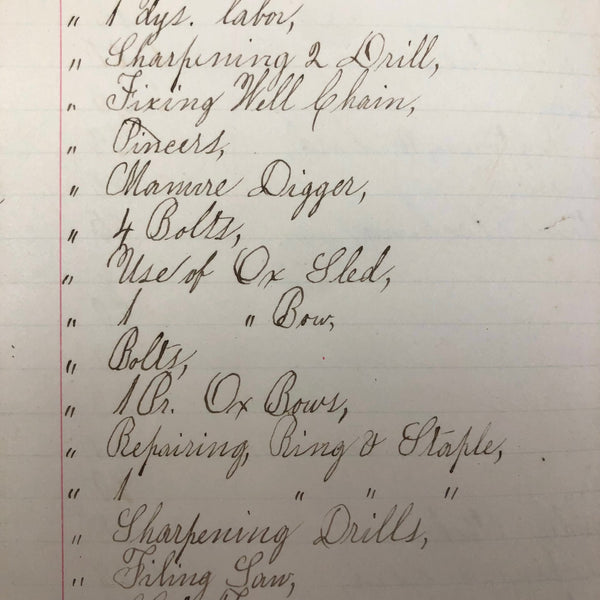 " 1 dys. labor,
" Sharpening 2 Drill,
" Fixing Well Chain,
" Pincers,
" Manure Digger,
" 4 Bolts,
" Use of Ox Sled,
" 1 " Bow,
" Bolts,
" 1 Pr. Ox Bows,
" Repairing, Ring & Staple,
" 1 " " "
" Sharpening Drills,
" Filing Saw,